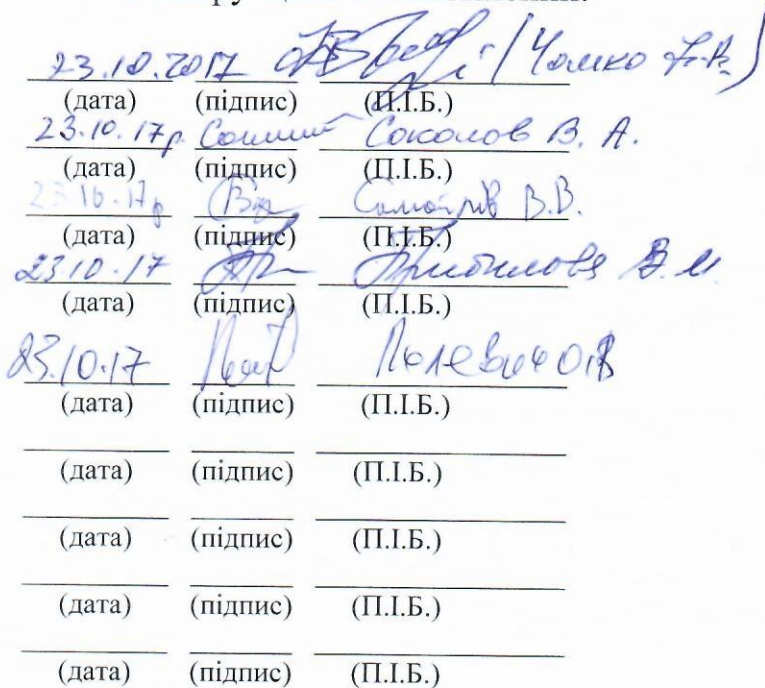 23.10.2017 (Чомко
(дата) (підпис) (П.І.Б.)
23.10.17р. Соколов В. А.
(дата) (підпис) (П.І.Б.)
23.10.17р В.В.
(дата) (підпис) (П.І.Б.)
23.10.17 В.М
(дата) (підпис) (П.І.Б.)
23.10.17 Полевич О.В
(дата) (підпис) (П.І.Б.)
(дата) (підпис) (П.І.Б.)
(дата) (підпис) (П.І.Б.)
(дата) (підпис) (П.І.Б.)
(дата) (підпис) (П.І.Б.)